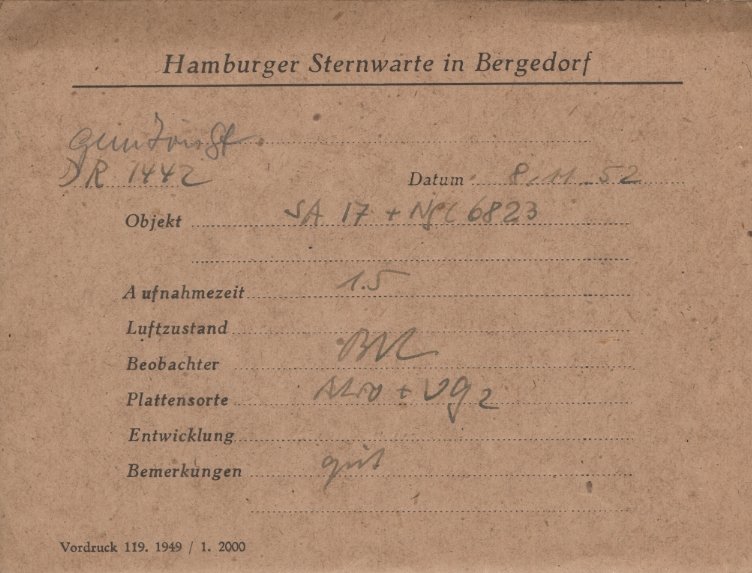 Hamburger Sternwarte in Bergedorf
DR 1442 Datum 8.11.52
Objekt SA 17 + NGC 6823
Aufnahmezeit 1.5
Luftzustand
Beobachter
Plattensorte + VG 2
Entwicklung
Bemerkungen gut
Vordruck 119. 1949 / 1. 2000